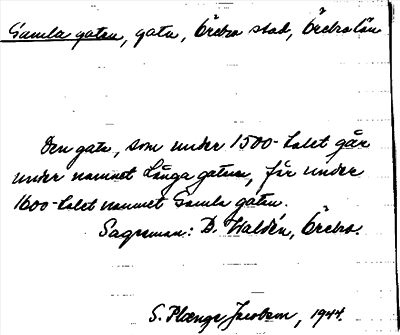 Gamla gatan, gata, Örebro stad, Örebro län
Den gata, som under 1500-talet går
under namnet Långa gatan, får under
1600-talet namnet Gamla gatan.
Sagesman: D. Waldén, Örebro.
S. Plænge Jacobson, 1944.